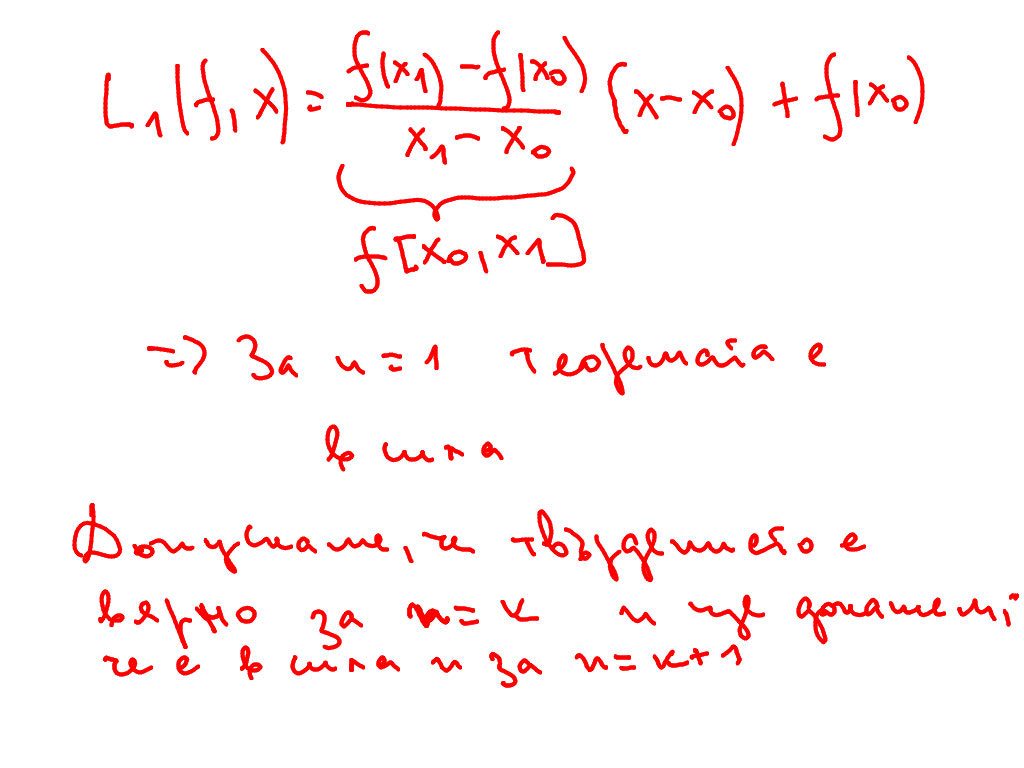 L₁(f, x) = (f(x₁) - f(x₀)) / (x₁ - x₀) (x - x₀) + f(x₀)
f[x₀, x₁]
=> За n=1 теоремата е
в сила
Допускаме, че твърдението е
вярно за n=k и ще докажем,
че е в сила и за n=k+1